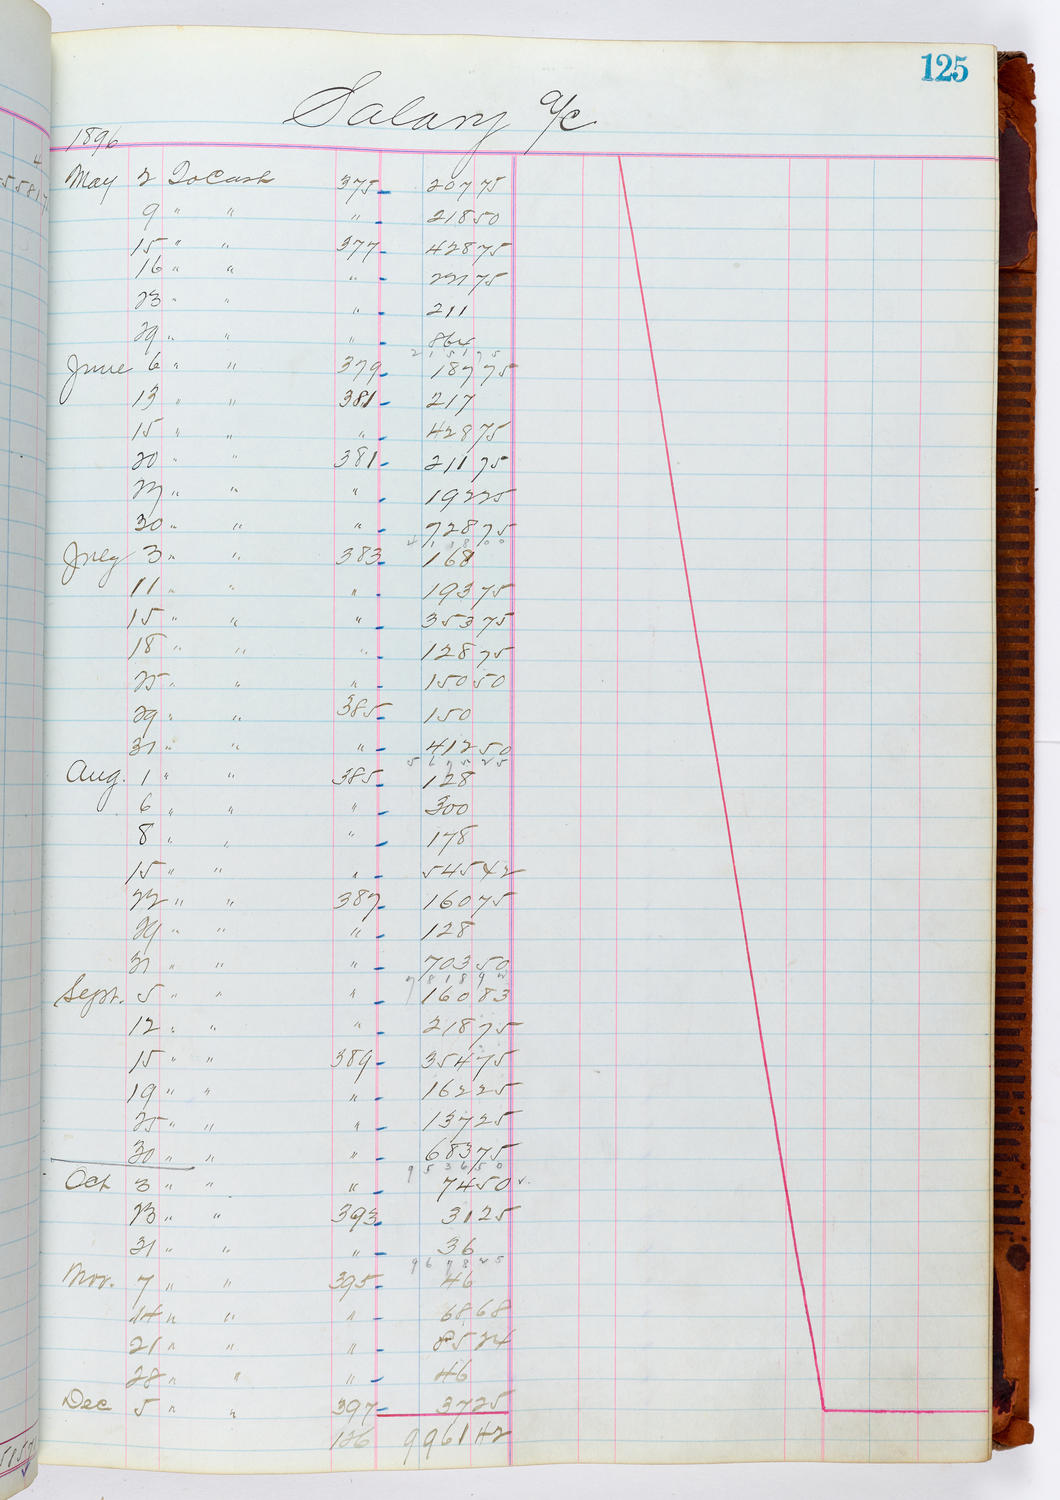 125
Salary a/c
1896
May 2 To Cash 375 207 75
9 " " " 218 50
15 " " 377 428 75
16 " " " 221 75
23 " " " 211
29 " " " 864
2151 75
June 6 " " 379 187 75
13 " " 381 217
15 " " " 428 75
20 " " 381 211 75
27 " " " 192 25
30 " " " 728 75
4118 00
July 3 " " 383 168
11 " " " 193 75
15 " " " 353 75
18 " " " 128 75
25 " " " 150 50
29 " " 385 150
31 " " " 412 50
5675 25
Aug. 1 " " 385 128
6 " " " 300
8 " " " 178
15 " " " 545 42
22 " " 387 160 75
29 " " " 128
31 " " " 703 50
7818 92
Sept. 5 " " " 160 83
12 " " " 218 75
15 " " 389 354 75
19 " " " 162 25
25 " " " 137 25
30 " " " 683 75
9536 50
Oct 3 " " " 74 50
23 " " 393 31 25
31 " " " 36
9678 25
Nov. 7 " " 395 46
14 " " " 68 68
21 " " " 85 24
28 " " " 46
Dec 5 " " 397 37 25
126 9961 42